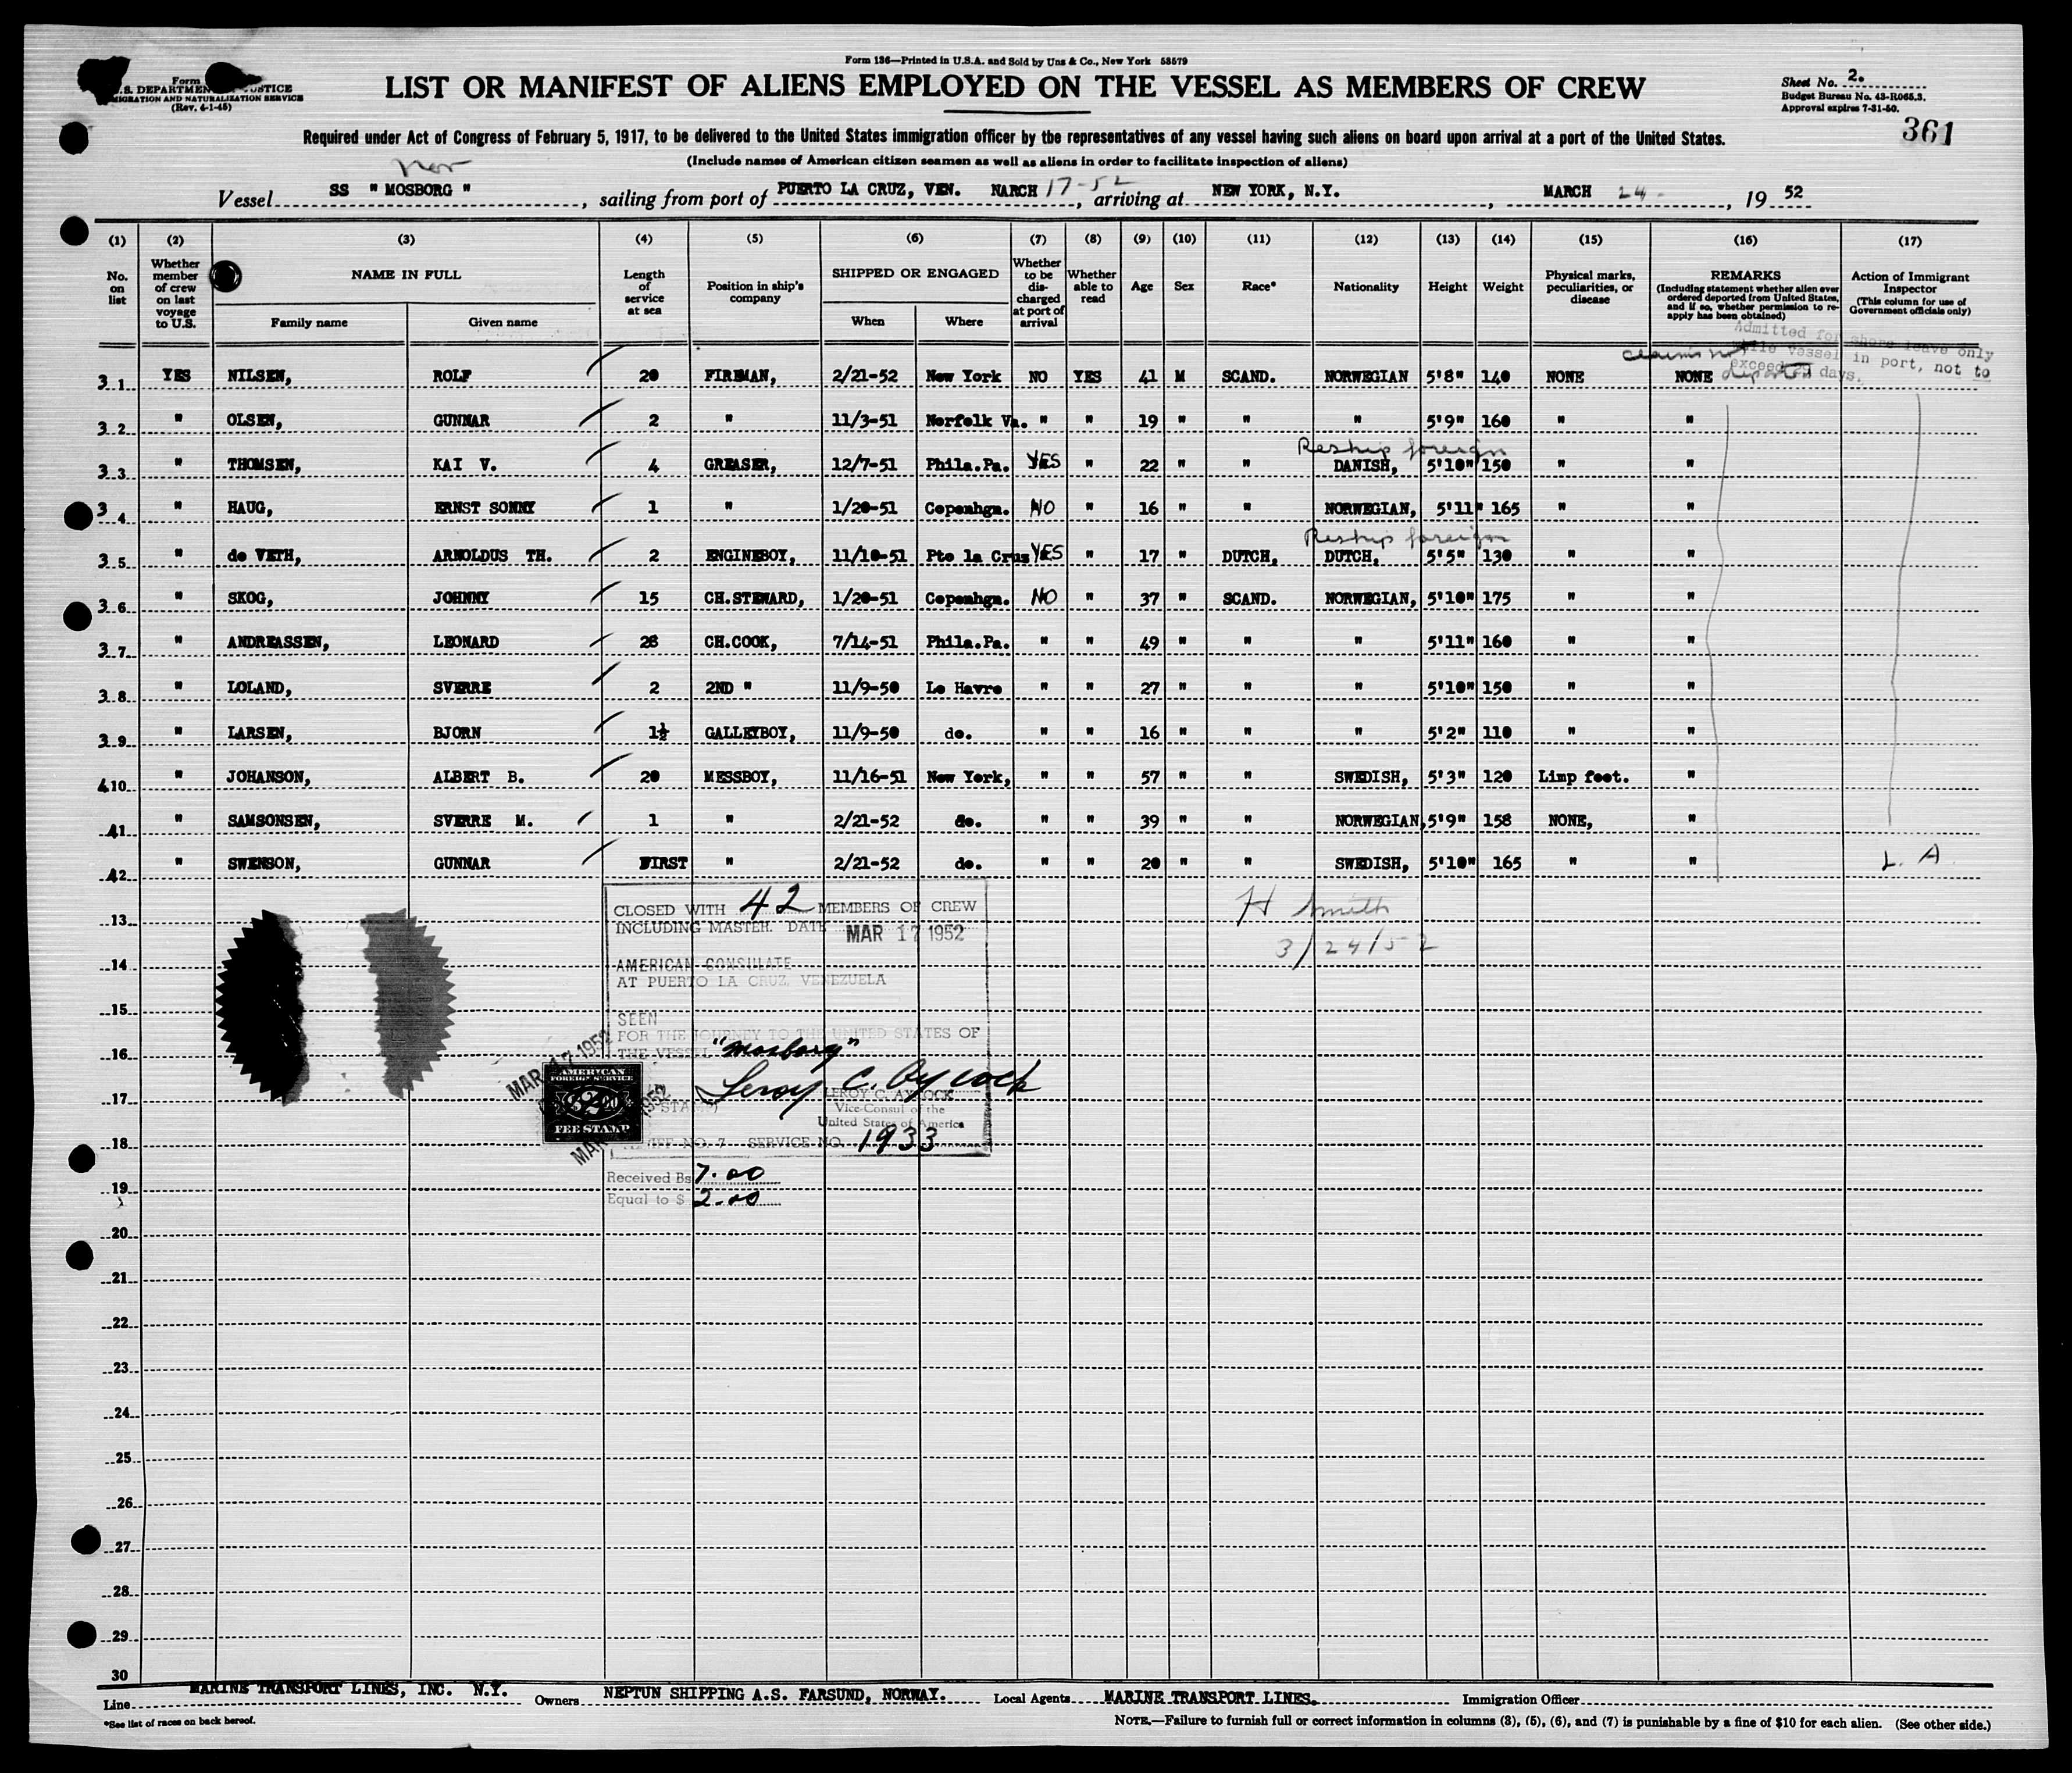 Form 136—Printed in U.S.A. and Sold by Unz & Co., New York 53579
Form
U.S. DEPARTMENT JUSTICE
IMMIGRATION AND NATURALIZATION SERVICE
(Rev. 4-1-45)
LIST OR MANIFEST OF ALIENS EMPLOYED ON THE VESSEL AS MEMBERS OF CREW
Sheet No. 2.
Budget Bureau No. 43-R065.3.
Approval expires 7-31-50.
361
Required under Act of Congress of February 5, 1917, to be delivered to the United States immigration officer by the representatives of any vessel having such aliens on board upon arrival at a port of the United States.
(Include names of American citizen seamen as well as aliens in order to facilitate inspection of aliens)
Nor
Vessel SS " MOSBORG ", sailing from port of PUERTO LA CRUZ, VEN. NARCH 17-52, arriving at NEW YORK, N.Y., MARCH 24-, 19 52
(1) (2) (3) (4) (5) (6) (7) (8) (9) (10) (11) (12) (13) (14) (15) (16) (17)
No. on list
Whether member of crew on last voyage to U.S.
NAME IN FULL
Family name Given name
Length of service at sea
Position in ship's company
SHIPPED OR ENGAGED
When Where
Whether to be discharged at port of arrival
Whether able to read
Age
Sex
Race*
Nationality
Height
Weight
Physical marks, peculiarities, or disease
REMARKS
(Including statement whether alien ever ordered deported from United States, and if so, whether permission to reapply has been obtained)
Action of Immigrant Inspector
(This column for use of Government officials only)
Admitted for shore leave only
while vessel in port, not to
exceed 29 days.
claims not
deported
31 YES NILSEN, ROLF 20 FIREMAN, 2/21-52 New York NO YES 41 M SCAND. NORWEGIAN 5'8" 140 NONE NONE
32 " OLSEN, GUNNAR 2 " 11/3-51 Norfolk Va. " " 19 " " " 5'9" 160 " "
Reship foreign
33 " THOMSEN, KAI V. 4 GREASER, 12/7-51 Phila.Pa. YES " 22 " " DANISH, 5'10" 150 " "
34 " HAUG, ERNST SONNY 1 " 1/20-51 Copenhgn. NO " 16 " " NORWEGIAN, 5'11" 165 " "
Reship foreign
35 " de VETH, ARNOLDUS TH. 2 ENGINEBOY, 11/10-51 Pto la Cruz YES " 17 " DUTCH, DUTCH, 5'5" 130 " "
36 " SKOG, JOHNNY 15 CH.STEWARD, 1/20-51 Copenhgn. NO " 37 " SCAND. NORWEGIAN, 5'10" 175 " "
37 " ANDREASSEN, LEONARD 28 CH.COOK, 7/14-51 Phila.Pa. " " 49 " " " 5'11" 160 " "
38 " LOLAND, SVERRE 2 2ND " 11/9-50 Le Havre " " 27 " " " 5'10" 150 " "
39 " LARSEN, BJORN 1½ GALLEYBOY, 11/9-50 do. " " 16 " " " 5'2" 110 " "
410 " JOHANSON, ALBERT B. 20 MESSBOY, 11/16-51 New York, " " 57 " " SWEDISH, 5'3" 120 Limp foot. "
41 " SAMSONSEN, SVERRE M. 1 " 2/21-52 do. " " 39 " " NORWEGIAN, 5'9" 158 NONE, "
42 " SWENSON, GUNNAR FIRST " 2/21-52 do. " " 20 " " SWEDISH, 5'10" 165 " " L. A.
CLOSED WITH 42 MEMBERS OF CREW
INCLUDING MASTER. DATE MAR 17 1952
H Smith
3/24/52
AMERICAN CONSULATE
AT PUERTO LA CRUZ, VENEZUELA
SEEN
FOR THE JOURNEY TO THE UNITED STATES OF
THE VESSEL "Mosborg"
Leroy C. Aycock
LEROY C. AYCOCK
Vice-Consul of the
United States of America
MAR 17 1952
AMERICAN
FOREIGN SERVICE
$2
FEE STAMP
STAMP)
NO. 7 SERVICE NO. 1933
Received Bs 7.00
Equal to $ 2.00
13
14
15
16
17
18
19
20
21
22
23
24
25
26
27
28
29
30
Line MARINE TRANSPORT LINES, INC. N.Y. Owners NEPTUN SHIPPING A.S. FARSUND, NORWAY. Local Agents MARINE TRANSPORT LINES. Immigration Officer
*See list of races on back hereof.
NOTE.—Failure to furnish full or correct information in columns (3), (5), (6), and (7) is punishable by a fine of $10 for each alien. (See other side.)